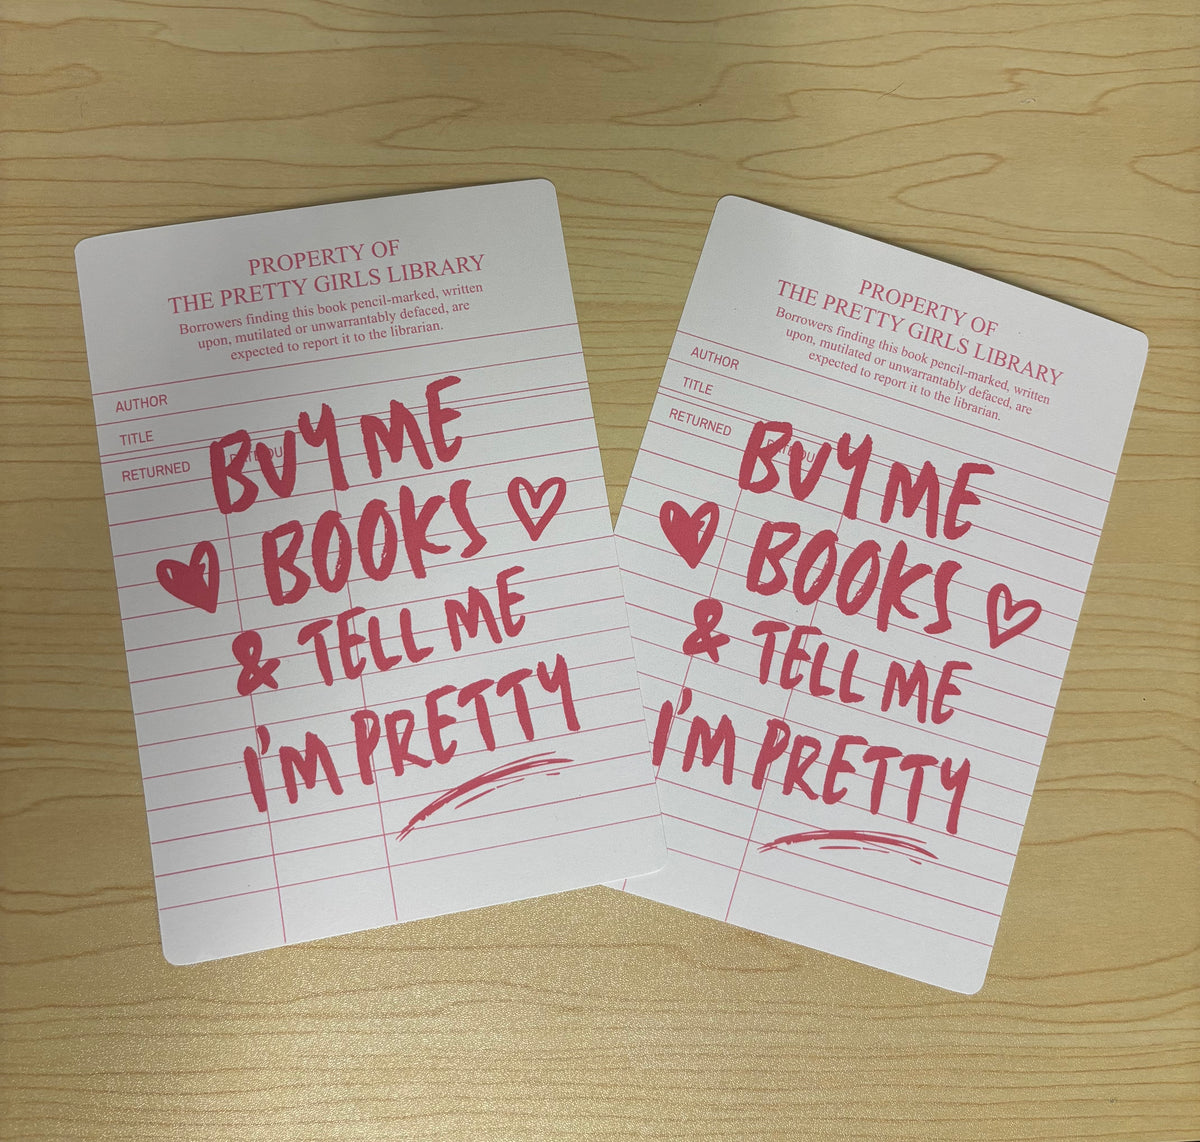 PROPERTY OF
THE PRETTY GIRLS LIBRARY
Borrowers finding this book pencil-marked, written
upon, mutilated or unwarrantably defaced, are
expected to report it to the librarian.
AUTHOR
TITLE
RETURNED
BUY ME
BOOKS
& TELL ME
I'M PRETTY
PROPERTY OF
THE PRETTY GIRLS LIBRARY
Borrowers finding this book pencil-marked, written
upon, mutilated or unwarrantably defaced, are
expected to report it to the librarian.
AUTHOR
TITLE
RETURNED
BUY ME
BOOKS
& TELL ME
I'M PRETTY